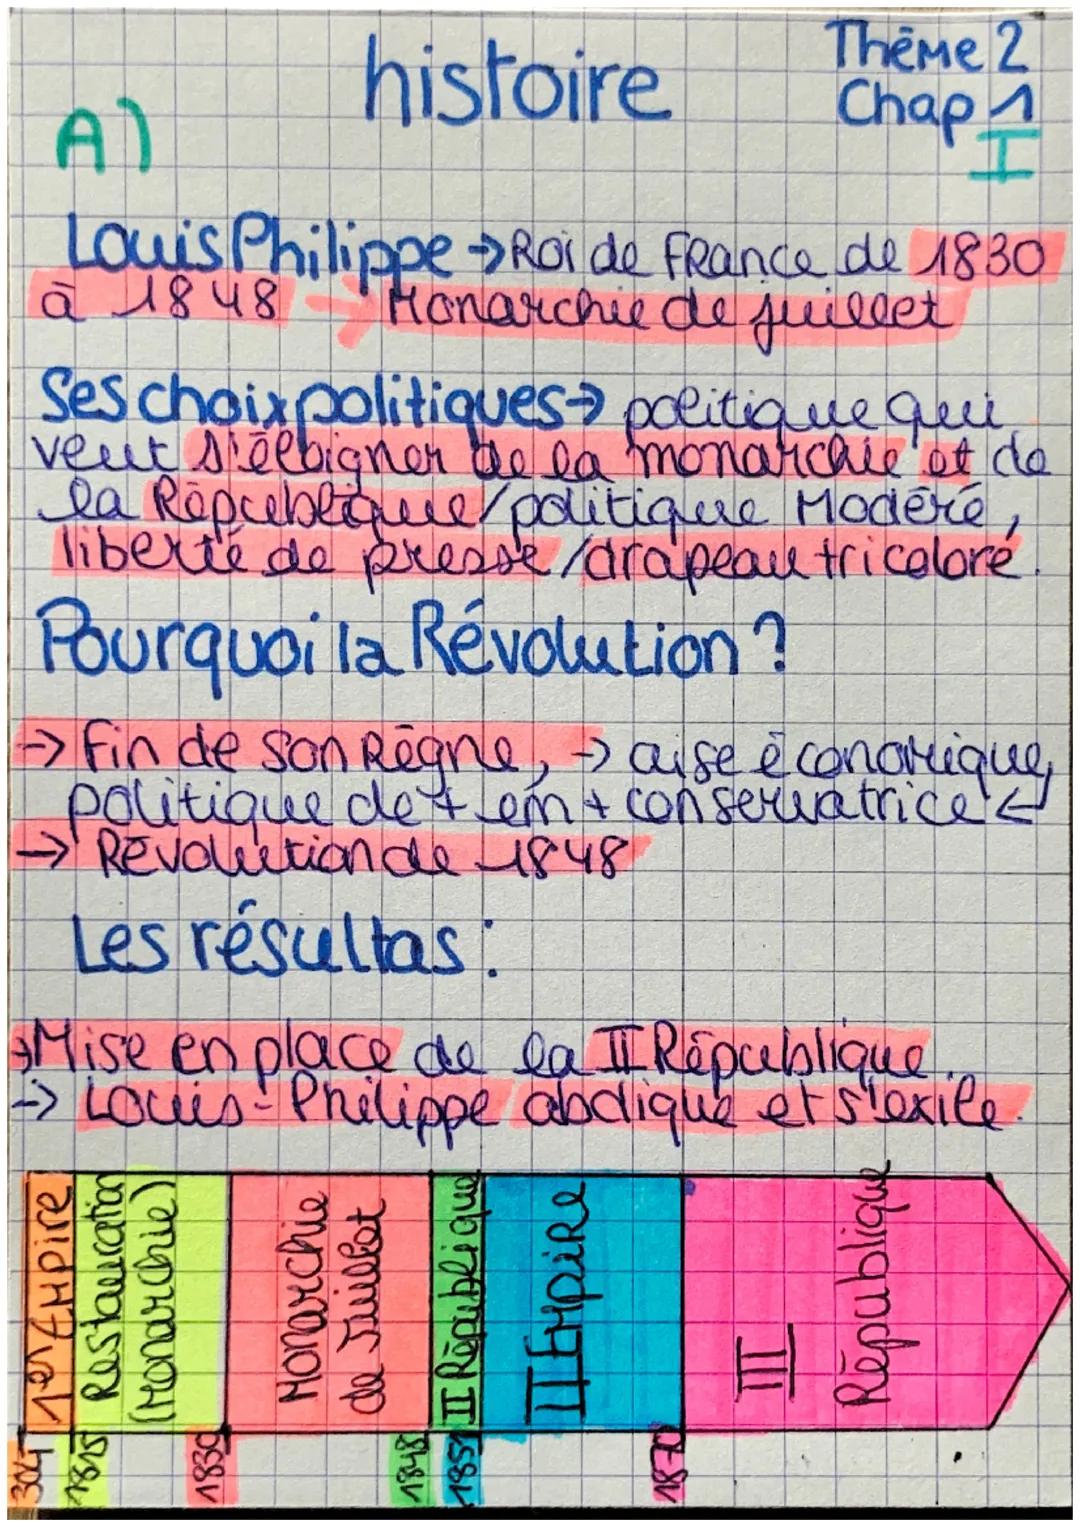 histoire
Thème 2
Chap 1
I
A)
Louis Philippe → Roi de France de 1830
à 1848 → Monarchie de juillet
Ses choix politiques → politique qui
veut s'éloigner de la monarchie et de
la République / politique Modéré,
liberté de presse / drapeau tricoloré.
Pourquoi la Révolution ?
→ Fin de son Règne, → crise économique,
politique de + em + conservatrice ↵
→ Révolution de 1848
Les résultas :
→ Mise en place de la II République.
→ Louis-Philippe abdique et s'exile.
1er Empire
Restauration
(Monarchie)
Monarchie
de Juillet
II République
II Empire
III
République
1815
1830
1848
1851
1870